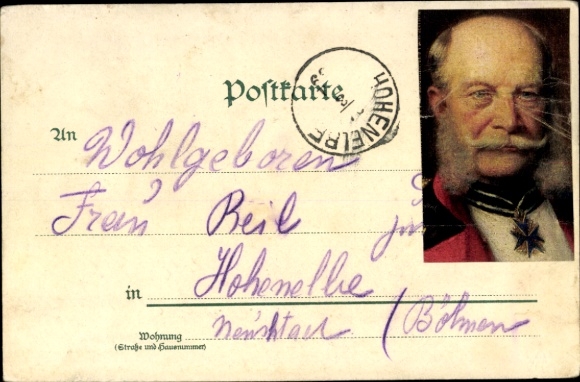 Postkarte
HOHENELBE
An Wohlgeboren
Frau Beil
in Hohenelbe
Wohnung
(Straße und Hausnummer)
Neustadt (Böhmen